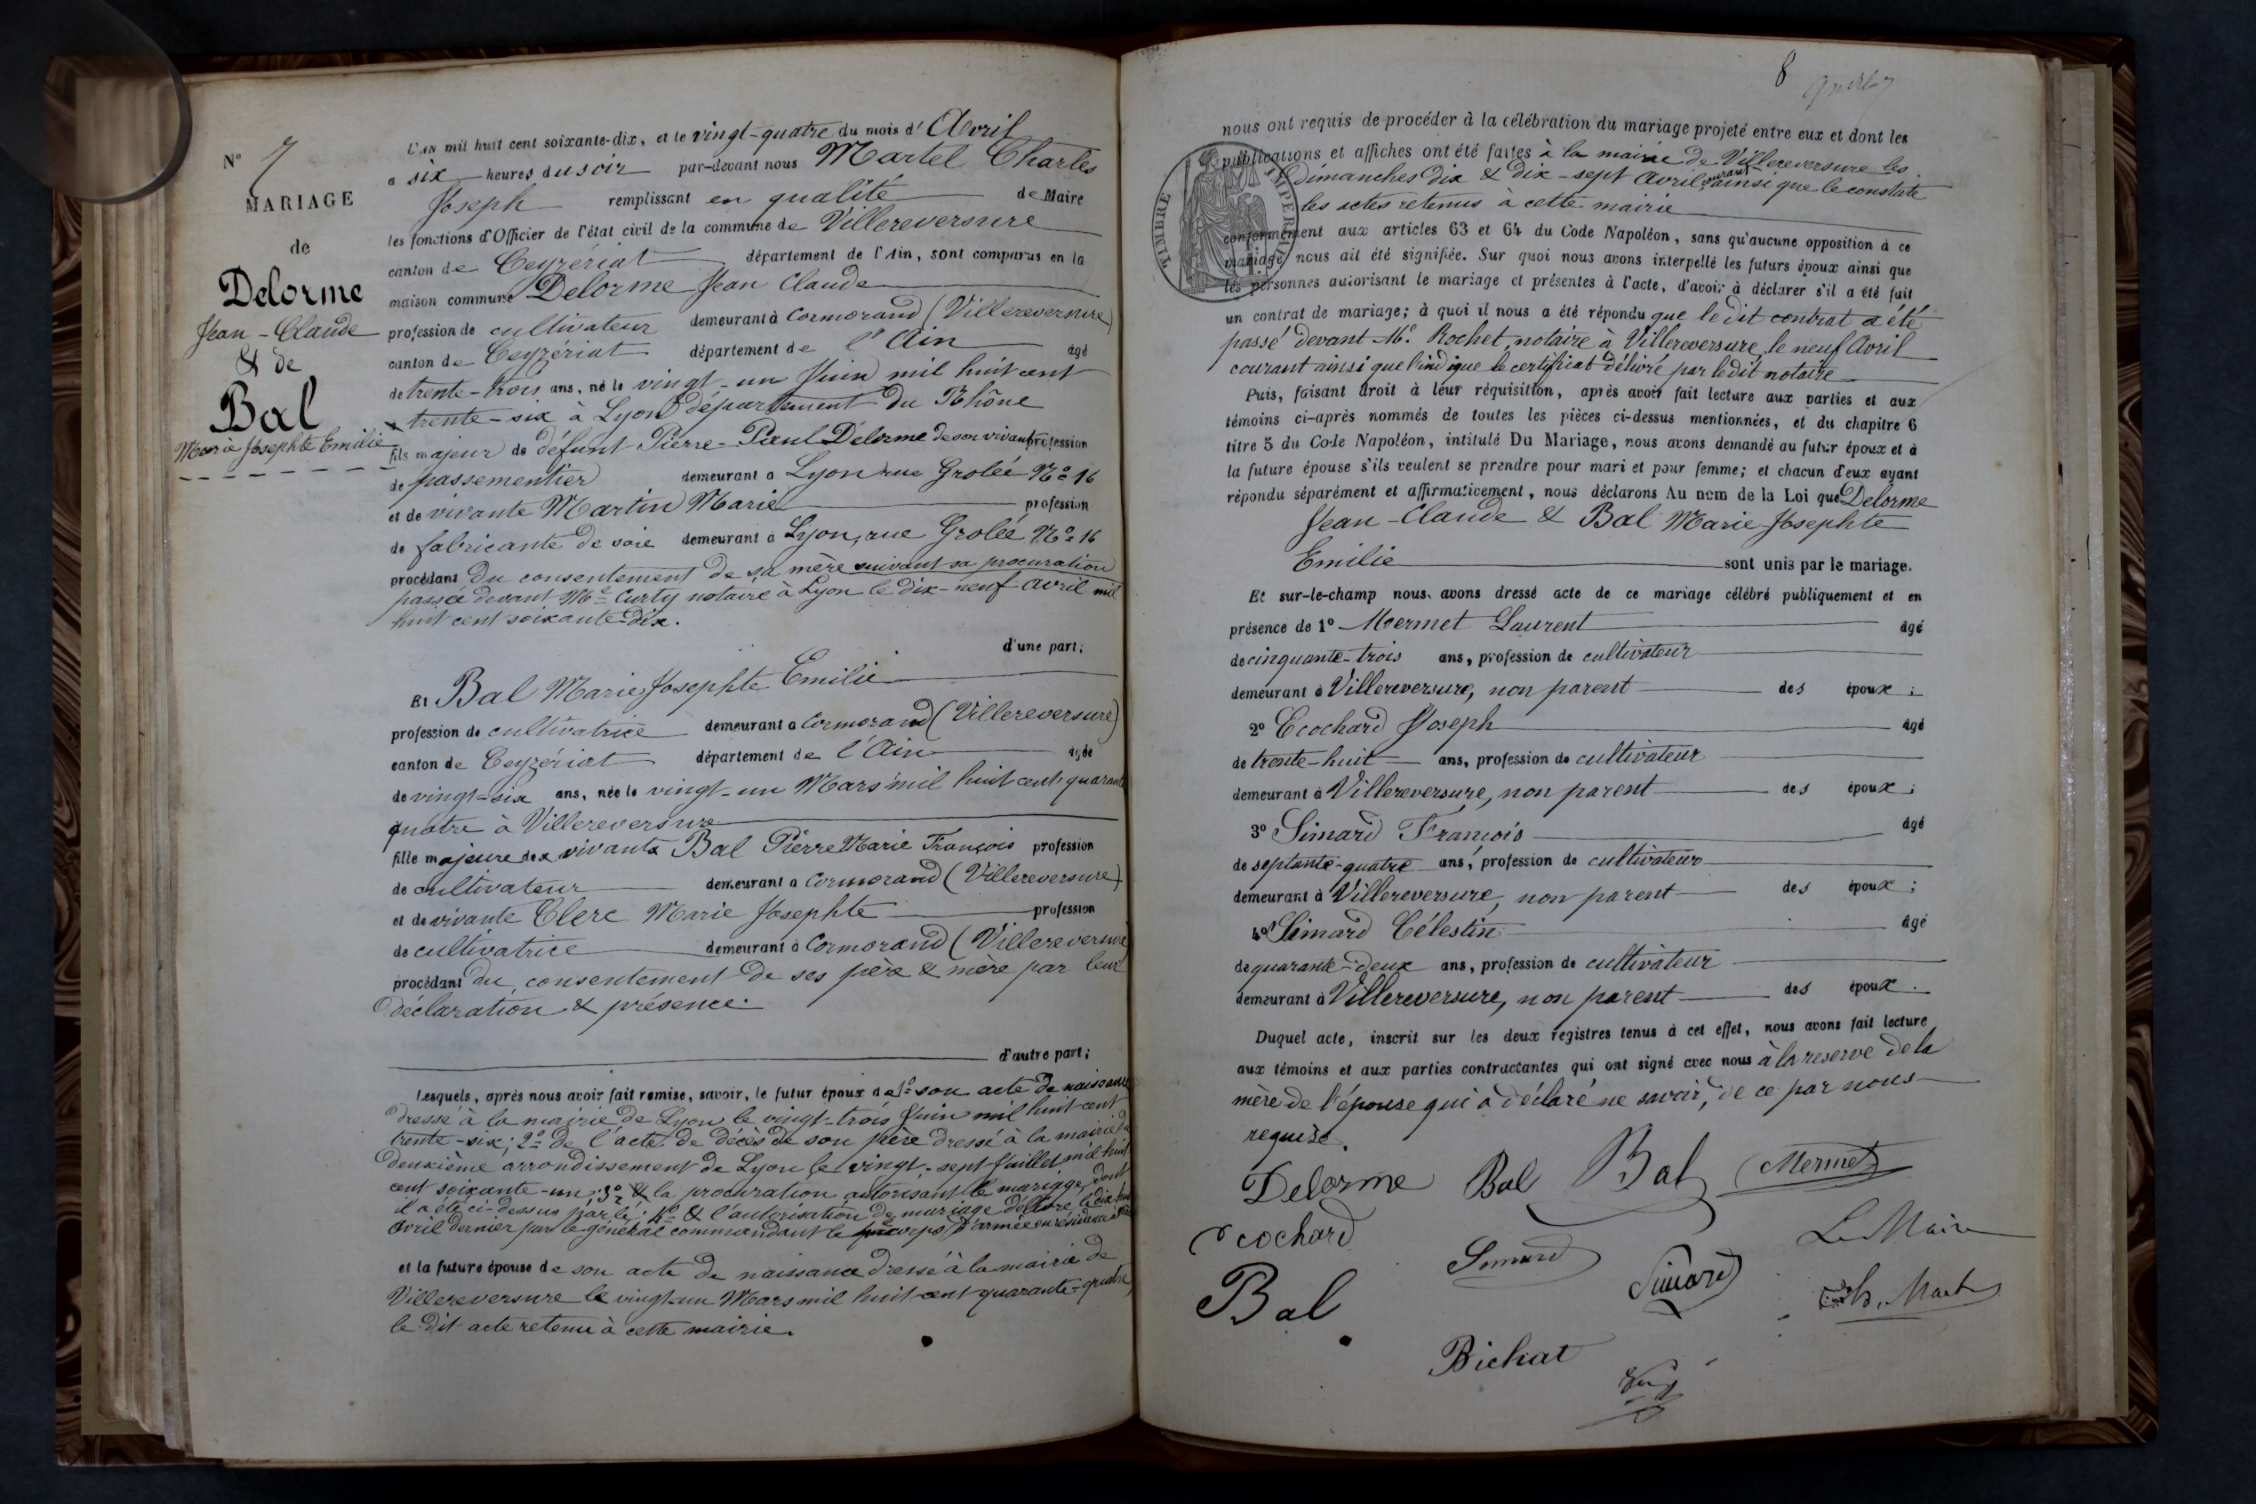 N° 7
MARIAGE
de
Delorme
Jean-Claude
& de
Bal
Marie Josephte Emilie
L'an mil huit cent soixante-dix, et le vingt-quatre du mois d'Avril
a six heures du soir par-devant nous Martel Charles
Joseph remplissant en qualité de Maire
les fonctions d'Officier de l'état civil de la commune de Villereversure
canton de Ceyzériat département de l'Ain, sont comparus en la
maison commune Delorme Jean Claude
profession de cultivateur demeurant à Cormorand (Villereversure)
canton de Ceyzériat département de l'Ain âgé
de trente-trois ans, né le vingt-un Juin mil huit cent
trente-six à Lyon département du Rhône
fils majeur de défunt Pierre-Paul Delorme de son vivant profession
de passementier demeurant a Lyon rue Grolée N° 16
et de vivante Martin Marie profession
de fabricante de soie demeurant à Lyon, rue Grolée N° 16
procédant du consentement de sa mère suivant sa procuration
passée devant Me Curty notaire à Lyon le dix-neuf avril mil
huit cent soixante-dix.
d'une part;
Et Bal Marie Josephte Emilie
profession de cultivatrice demeurant a Cormorand (Villereversure)
canton de Ceyzériat département de l'Ain âgée
de vingt-six ans, née le vingt-un Mars mil huit cent quarante
quatre à Villereversure
fille majeure des vivants Bal Pierre Marie François profession
de cultivateur demeurant a Cormorand (Villereversure)
et de vivante Clerc Marie Josephte profession
de cultivatrice demeurant à Cormorand (Villereversure
procédant du consentement de ses père & mère par leur
déclaration & présence.
d'autre part;
Lesquels, après nous avoir fait remise, savoir, le futur époux de 1° son acte de naissance
dressé à la mairie de Lyon le vingt-trois Juin mil huit cent
trente-six; 2° de l'acte de décès de son père dressé à la mairie du
deuxième arrondissement de Lyon le vingt-sept Juillet mil huit
cent soixante-un; 3° & la procuration autorisant le mariage, dont
il a été ci-dessus parlé; 4° & l'autorisation de mariage délivré le dix
avril dernier par le général commandant le corps d'armée en résidence à
et la future épouse de son acte de naissance dressé à la mairie de
Villereversure le vingt-un Mars mil huit cent quarante-quatre,
le dit acte retenu à cette mairie.
8
nous ont requis de procéder à la célébration du mariage projeté entre eux et dont les
publications et affiches ont été faites à la mairie de Villereversure les
dimanches dix & dix-sept Avril courant ainsi que le constate
les actes retenus à cette mairie
TIMBRE IMPERIAL
conformément aux articles 63 et 64 du Code Napoléon, sans qu'aucune opposition à ce
mariage nous ait été signifiée. Sur quoi nous avons interpellé les futurs époux ainsi que
les personnes autorisant le mariage et présentes à l'acte, d'avoir à déclarer s'il a été fait
un contrat de mariage; à quoi il nous a été répondu que le dit contrat a été
passé devant Me. Rochet, notaire à Villereversure, le neuf Avril
courant ainsi que l'indique le certificat délivré par le dit notaire
Puis, faisant droit à leur réquisition, après avoir fait lecture aux parties et aux
témoins ci-après nommés de toutes les pièces ci-dessus mentionnées, et du chapitre 6
titre 5 du Code Napoléon, intitulé Du Mariage, nous avons demandé au futur époux et à
la future épouse s'ils veulent se prendre pour mari et pour femme; et chacun d'eux ayant
répondu séparément et affirmativement, nous déclarons Au nom de la Loi que Delorme
Jean-Claude & Bal Marie Josephte
Emilie sont unis par le mariage.
Et sur-le-champ nous avons dressé acte de ce mariage célébré publiquement et en
présence de 1° Mermet Laurent âgé
de cinquante-trois ans, profession de cultivateur
demeurant à Villereversure, non parent des époux;
2° Ecochard Joseph âgé
de trente-huit ans, profession de cultivateur
demeurant à Villereversure, non parent des époux;
3° Simard François âgé
de septante-quatre ans, profession de cultivateur
demeurant à Villereversure, non parent des époux;
4° Simard Célestin âgé
de quarante-deux ans, profession de cultivateur
demeurant à Villereversure, non parent des époux.
Duquel acte, inscrit sur les deux registres tenus à cet effet, nous avons fait lecture
aux témoins et aux parties contractantes qui ont signé avec nous à la reserve de la
mère de l'épouse qui a déclaré ne savoir, de ce par nous
requise.
Delorme Bal Bal Mermet
Ecochard Simard Simard Le Maire
Bal Ch. Martel
Bichat